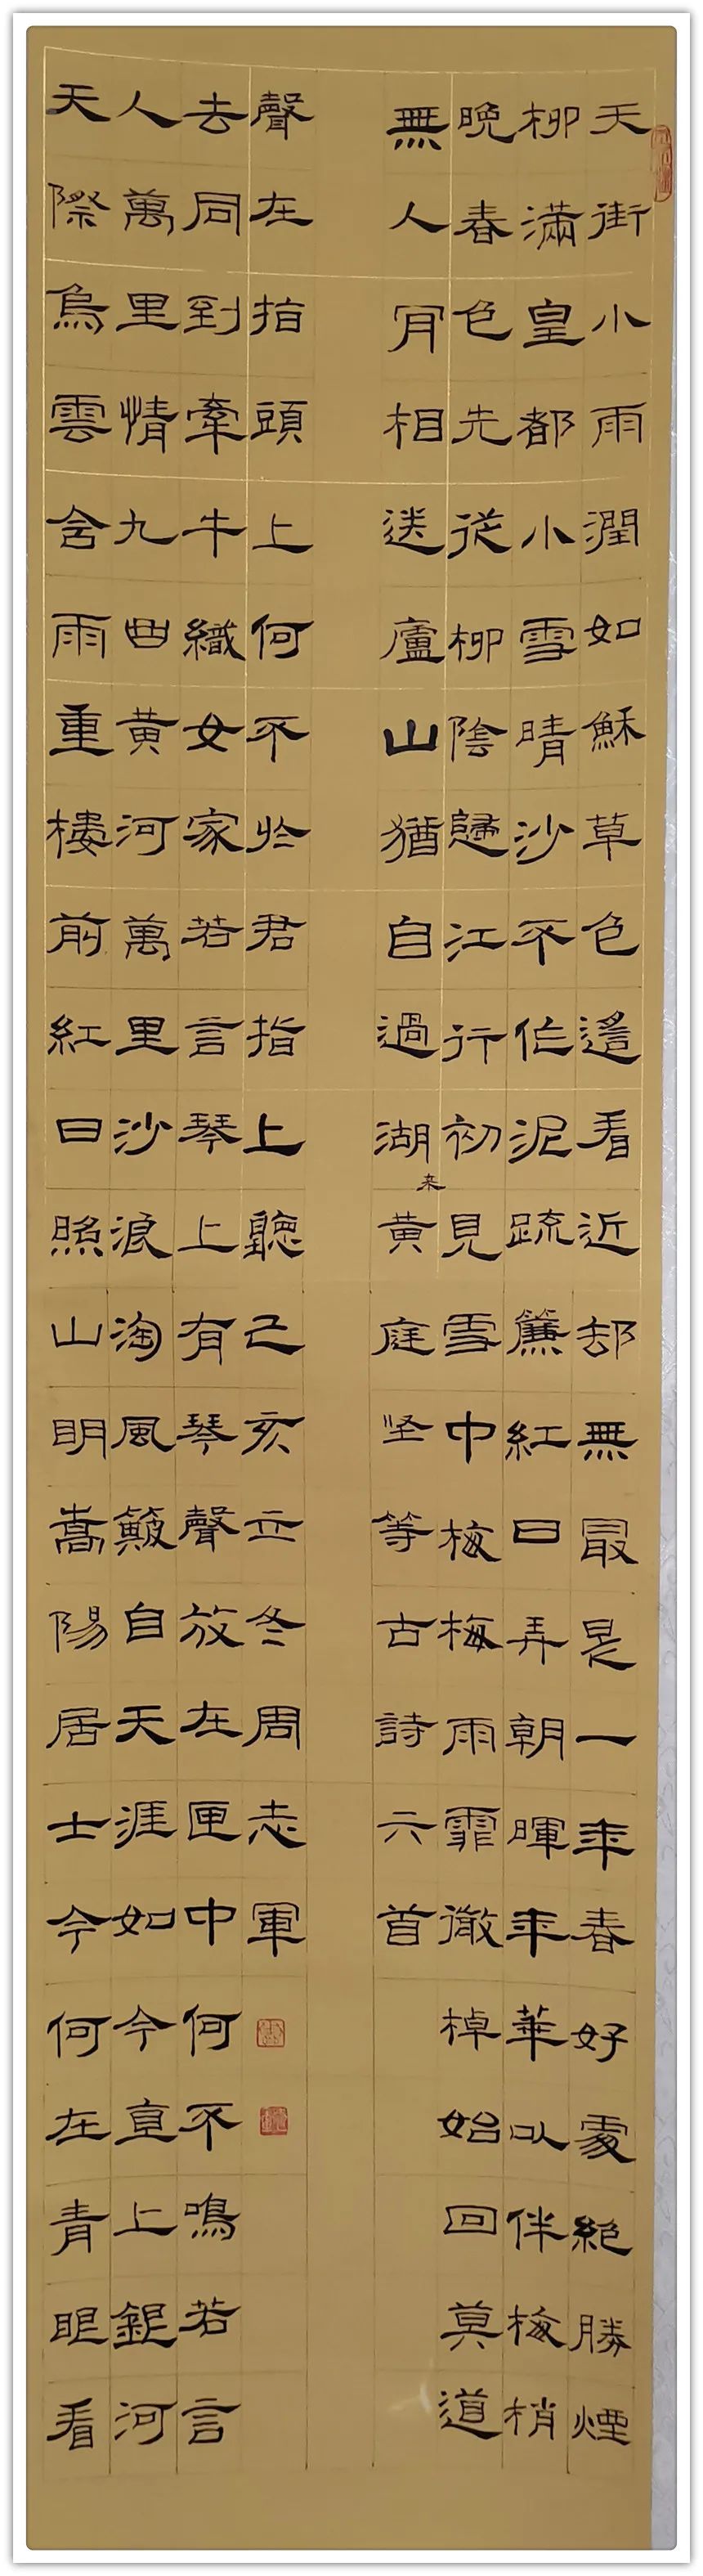 天街小雨潤如穌草色遙看近却無最是一年春好處絕勝煙
柳滿皇都小雪晴沙不作泥疏簾紅日弄朝暉年華以伴梅梢
晚春色先從柳陰歸江行初見雪中梅梅雨霏微棹始回莫道
無人肎相送廬山猶自過湖来黃庭坚等古詩六首
天際烏雲含雨重樓前紅日照山明嵩陽居士今何在青眼看
人萬里情九曲黃河萬里沙浪淘風簸自天涯如今直上銀河
去同到牽牛織女家若言琴上有琴聲放在匣中何不鳴若言
聲在指頭上何不於君指上聽己亥立冬周志軍